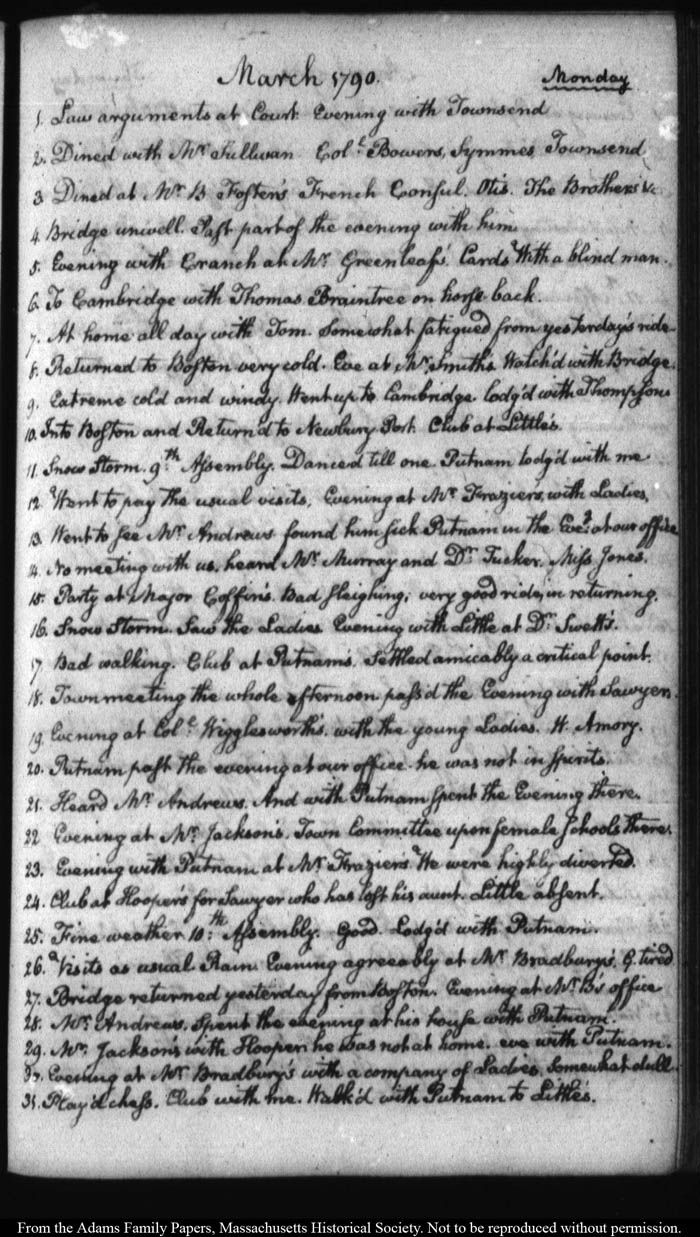 March 1790. Monday
1. Law arguments at Court. Evening with Townsend
2. Dined with Mr Sullivan Colo. Bowers, Symmes Townsend.
3. Dined at Mr B Foster's French Consul. Otis. The Brothers &c
4. Bridge unwell. Past part of the evening with him.
5. Evening with Cranch at Mr Greenleaf's. Cards. With a blind man.
6. To Cambridge with Thomas. Braintree on horse back.
7. At home all day with Tom. Somewhat fatigued from yesterday's ride
8. Returned to Boston very cold. Eve at Mr Smith's. Watch'd with Bridge.
9. Extreme cold and windy. Went up to Cambridge lodg'd with Thompson
10. Into Boston and Return'd to Newbury-Port. Club at Little's.
11. Snow Storm. 9.th Assembly. Danced till one. Putnam lodg'd with me
12. Went to pay the usual visits. Evening at Mr Fraziers, with Ladies,
13. Went to see Mr Andrews found him sick Putnam in the Eveg. at our office
14. No meeting with us, heard Mr Murray and Dr Tucker. Miss Jones.
15. Party at Major Coffin's. Bad sleighing; very good ride, in returning.
16. Snow Storm. Saw the Ladies Evening with Little at Dr Swett's.
17 Bad walking. Club at Putnam's. Settled amicably a critical point.
18. Town meeting the whole afternoon pass'd the Evening with Sawyer.
19. Evening at Colo. Wigglesworth's. with the young Ladies. H. Amory.
20. Putnam past the evening at our office. he was not in spirits.
21. Heard Mr Andrews. And with Putnam spent the Evening there.
22 Evening at Mr Jackson's. Town Committee upon female Schools there.
23. Evening with Putnam at Mr Frazier's We were highly diverted.
24. Club at Hooper's for Sawyer who has lost his aunt. Little absent.
25. Fine weather 10:th Assembly. Good. Lodg'd with Putnam.
26. Visits as usual Rain. Evening agreeably at Mr Bradbury's. tired
27. Bridge returned yesterday from Boston. Evening at Mr B's office
28. Mr Andrews. Spent the evening at his house with Putnam.
29. Mr Jackson's with Hooper. he was not at home. eve with Putnam.
30. Evening at Mr Bradbury's with a company of Ladies. Somewhat dull
31. Play'd chess. Club with me. Walk'd with Putnam to Little's.
From the Adams Family Papers, Massachusetts Historical Society. Not to be reproduced without permission.